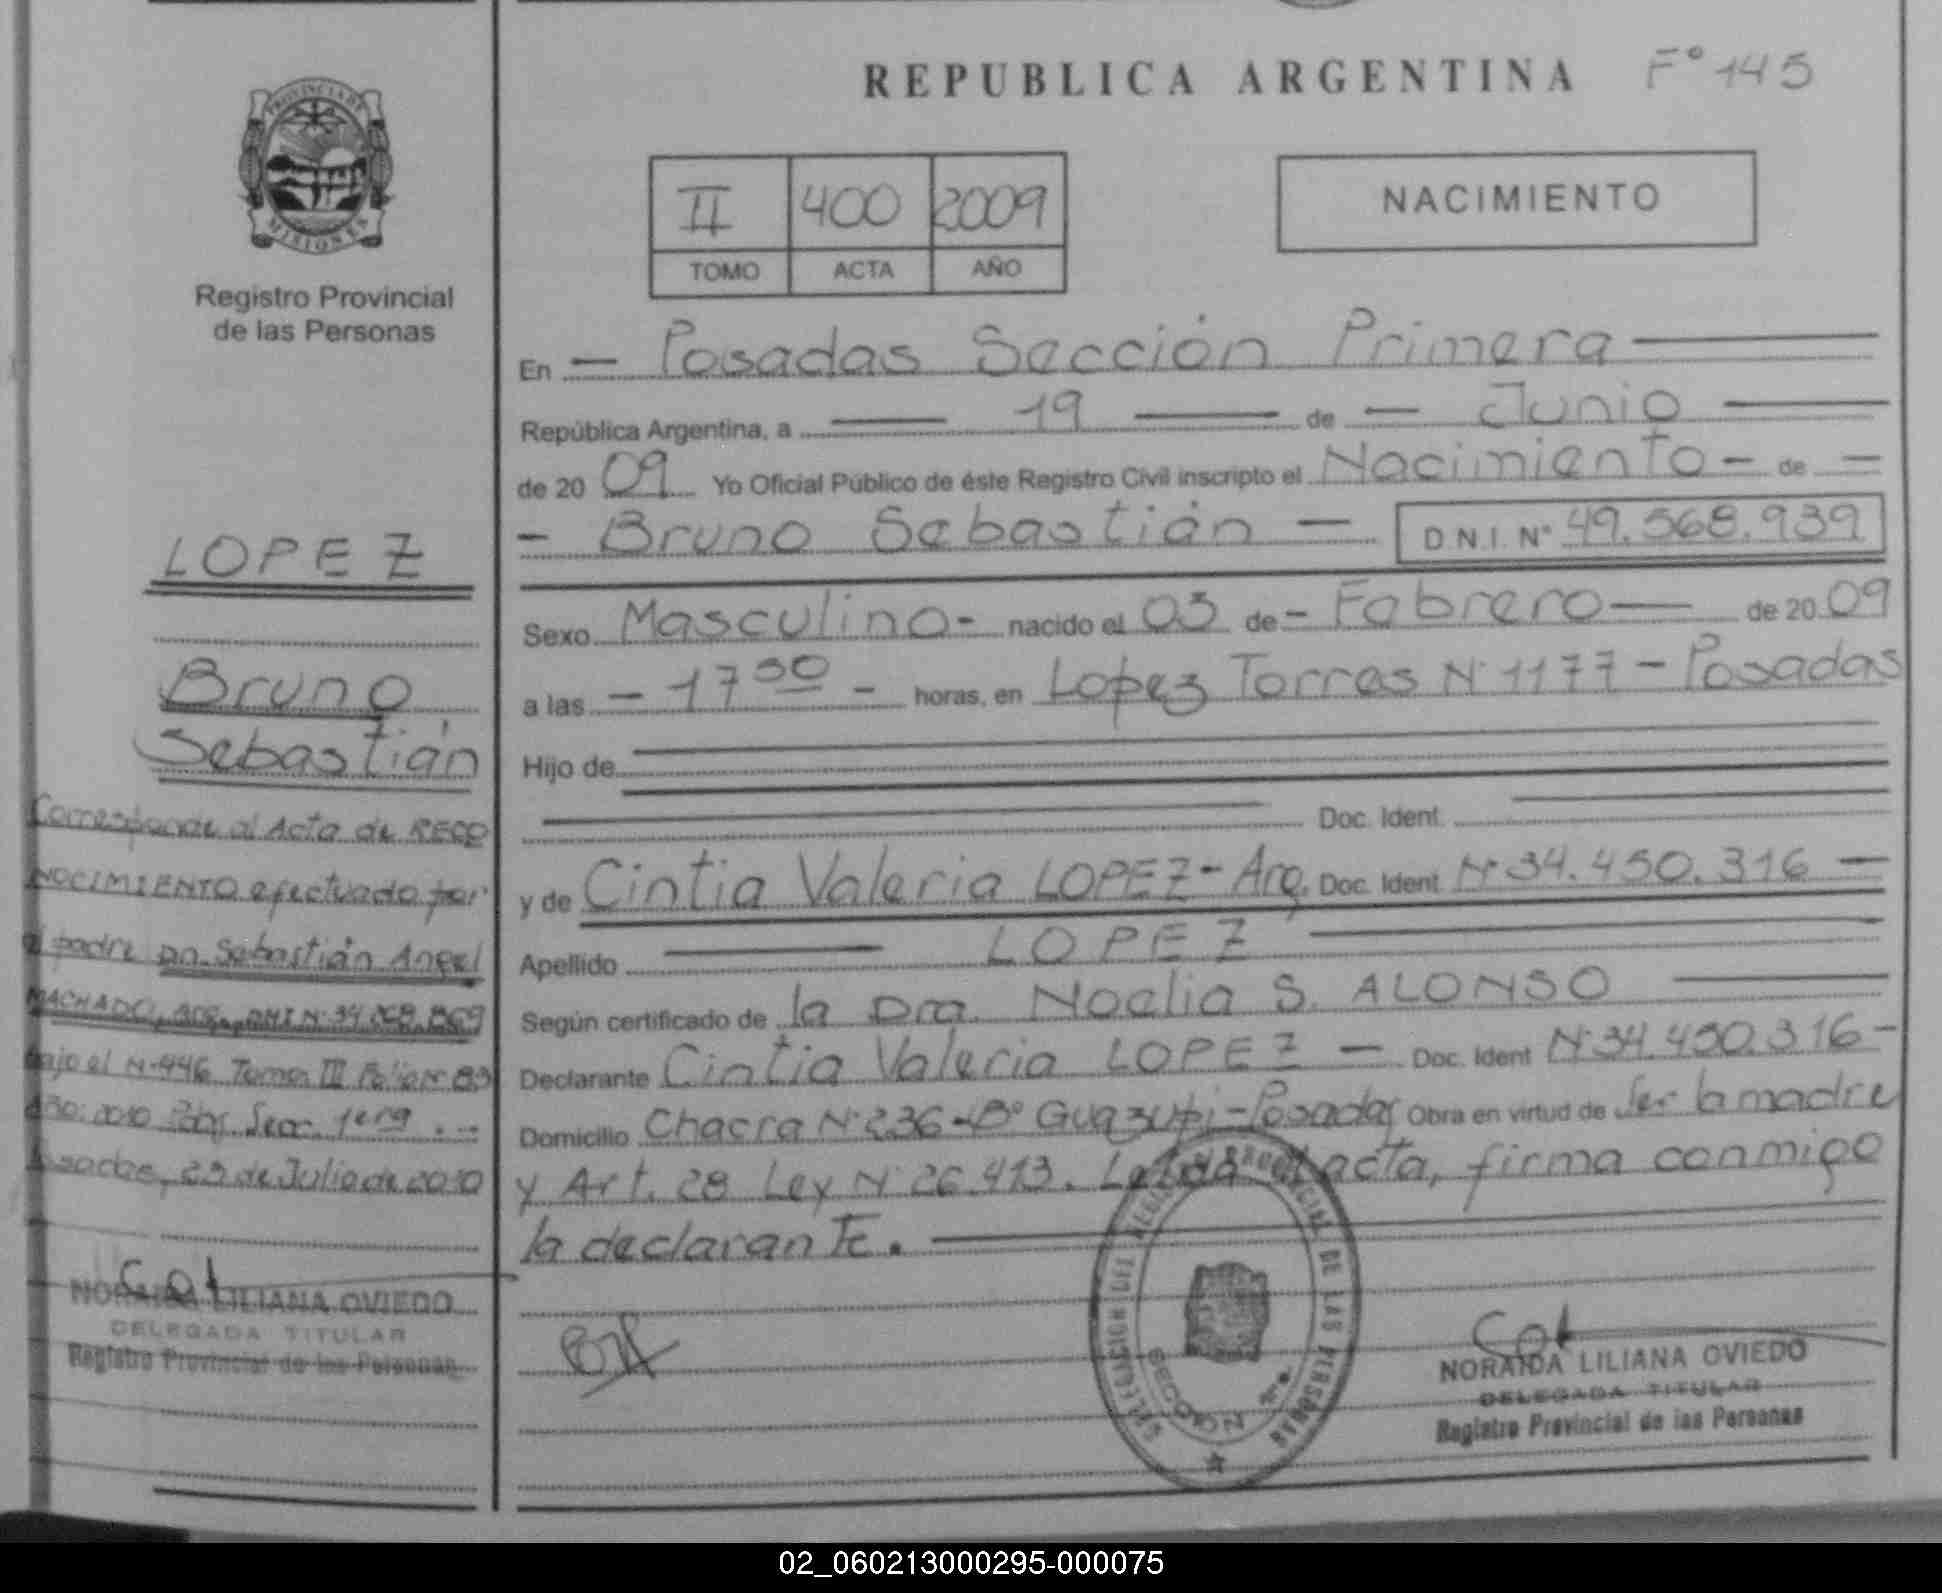 REPUBLICA ARGENTINA Fº 145
PROVINCIA DE
MISIONES
Registro Provincial
de las Personas
II 400 2009
TOMO ACTA AÑO
NACIMIENTO
En — Posadas Sección Primera —
República Argentina, a — 19 — de — Junio —
de 20 09 Yo Oficial Público de éste Registro Civil inscripto el Nacimiento - de —
- Bruno Sebastián — D.N.I. Nº 49.568.939
Sexo Masculino - nacido el 03 de - Febrero — de 20 09
a las — 17 30 - horas, en Lopez Torres Nº 1177 - Posadas
Hijo de
Doc. Ident.
y de Cintia Valeria LOPEZ - Arg. Doc. Ident Nº 34.450.316 —
Apellido — LOPEZ —
Según certificado de la Dra. Noelia S. ALONSO —
Declarante Cintia Valeria LOPEZ — Doc. Ident Nº 34.450.316 -
Domicilio Chacra Nº 236 - Bº Guazupi - Posadas Obra en virtud de Ser la madre
y Art. 28 Ley Nº 26.413. Leída el acta, firma conmigo
la declarante. —
LOPEZ
Bruno
Sebastián
Corresponde al Acta de RECO
NOCIMIENTO efectuado por
el padre Dn. Sebastián Angel
MACHADO, arg., DNI Nº
bajo el Nº 446 Tomo III Folio Nº 83
año: 2010 Secc. 1era
Posadas, 23 de Julio de 2010
NORAIDA LILIANA OVIEDO
DELEGADA TITULAR
Registro Provincial de las Personas
DELEGACION DEL REGISTRO PROVINCIAL DE LAS PERSONAS
SECCION 1ra.
NORAIDA LILIANA OVIEDO
DELEGADA TITULAR
Registro Provincial de las Personas
02_060213000295-000075